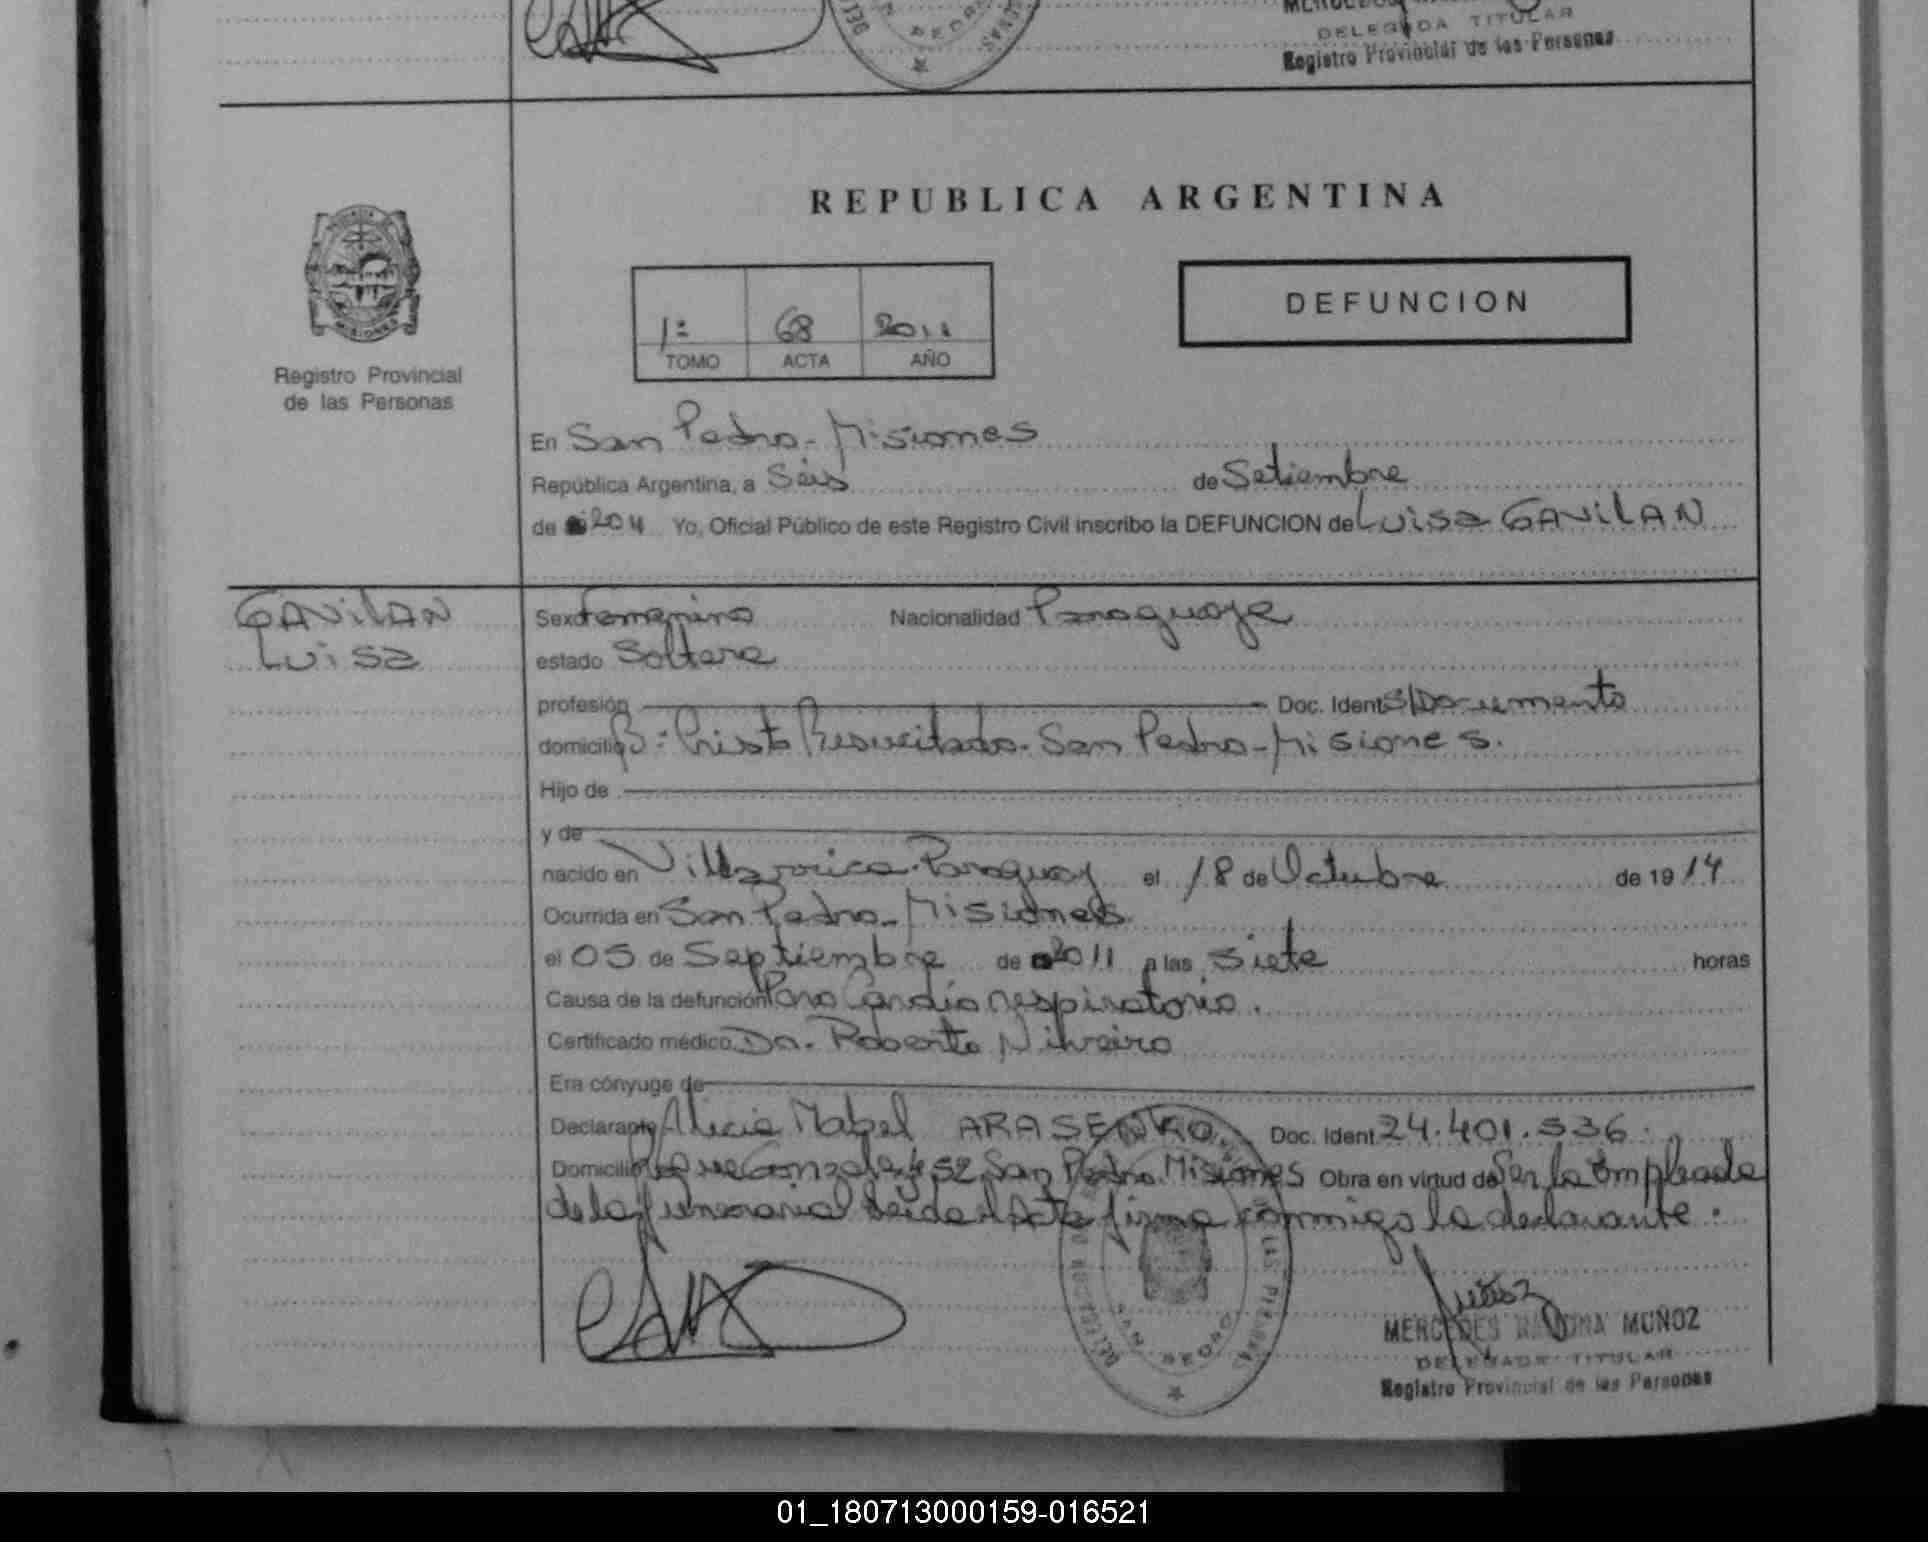 MERCEDES
DELEGADA TITULAR
Registro Provincial de las Personas
REPUBLICA ARGENTINA
DEFUNCION
1º 68 2011
TOMO ACTA AÑO
MISIONES
Registro Provincial
de las Personas
En San Pedro - Misiones
República Argentina, a Seis de Setiembre
de 2011 Yo, Oficial Público de este Registro Civil inscribo la DEFUNCION de Luisa GAVILAN
GAVILAN
Luisa
Sexo Femenino Nacionalidad Paraguaya
estado Soltera
profesión Doc. Ident. S/Documento
domicilio Bº: Cristo Resucitado - San Pedro - Misiones.
Hijo de
y de
nacido en Villarrica - Paraguay el 18 de Octubre de 19 14
Ocurrida en San Pedro - Misiones
el 05 de Septiembre de 2011 a las Siete horas
Causa de la defunción Paro Cardio respiratorio.
Certificado médico Dr. Roberto
Era cónyuge de
Declarante Alicia Mabel Doc. Ident. 24.401.536.
Domicilio Roque Gonzalez 452 San Pedro Misiones Obra en virtud de Ser la Empleada
de la funeraria leida el Acta firma conmigo la declarante.
SAN PEDRO
MERCEDES RAMONA MUÑOZ
DELEGADA TITULAR
Registro Provincial de las Personas
01_180713000159-016521